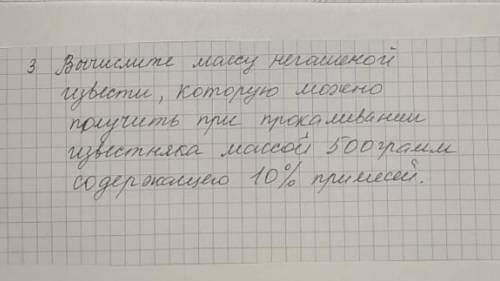 3 Вычислите массу негашеной
извести, которую можно
получить при прокаливании
известняка массой 500 грамм
содержащего 10% примесей.